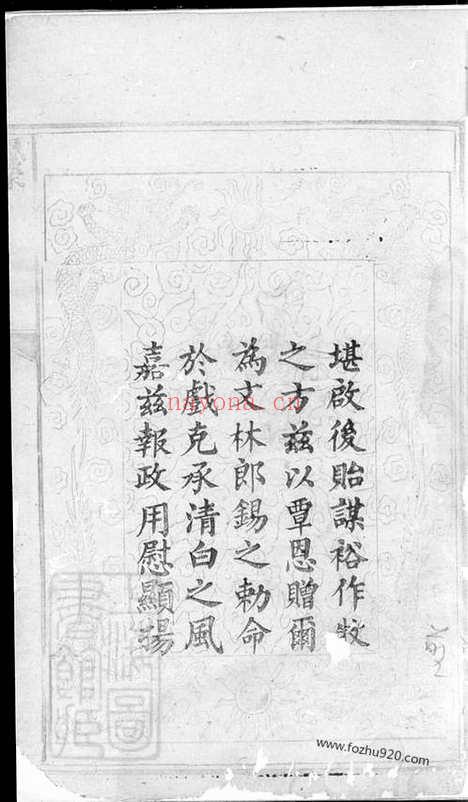 堪啟後貽謀裕作牧
之方茲以覃恩贈爾
為文林郎錫之勅命
於戲克承清白之風
嘉茲報政用慰顯揚
nayona.cn
www.fozhu920.com